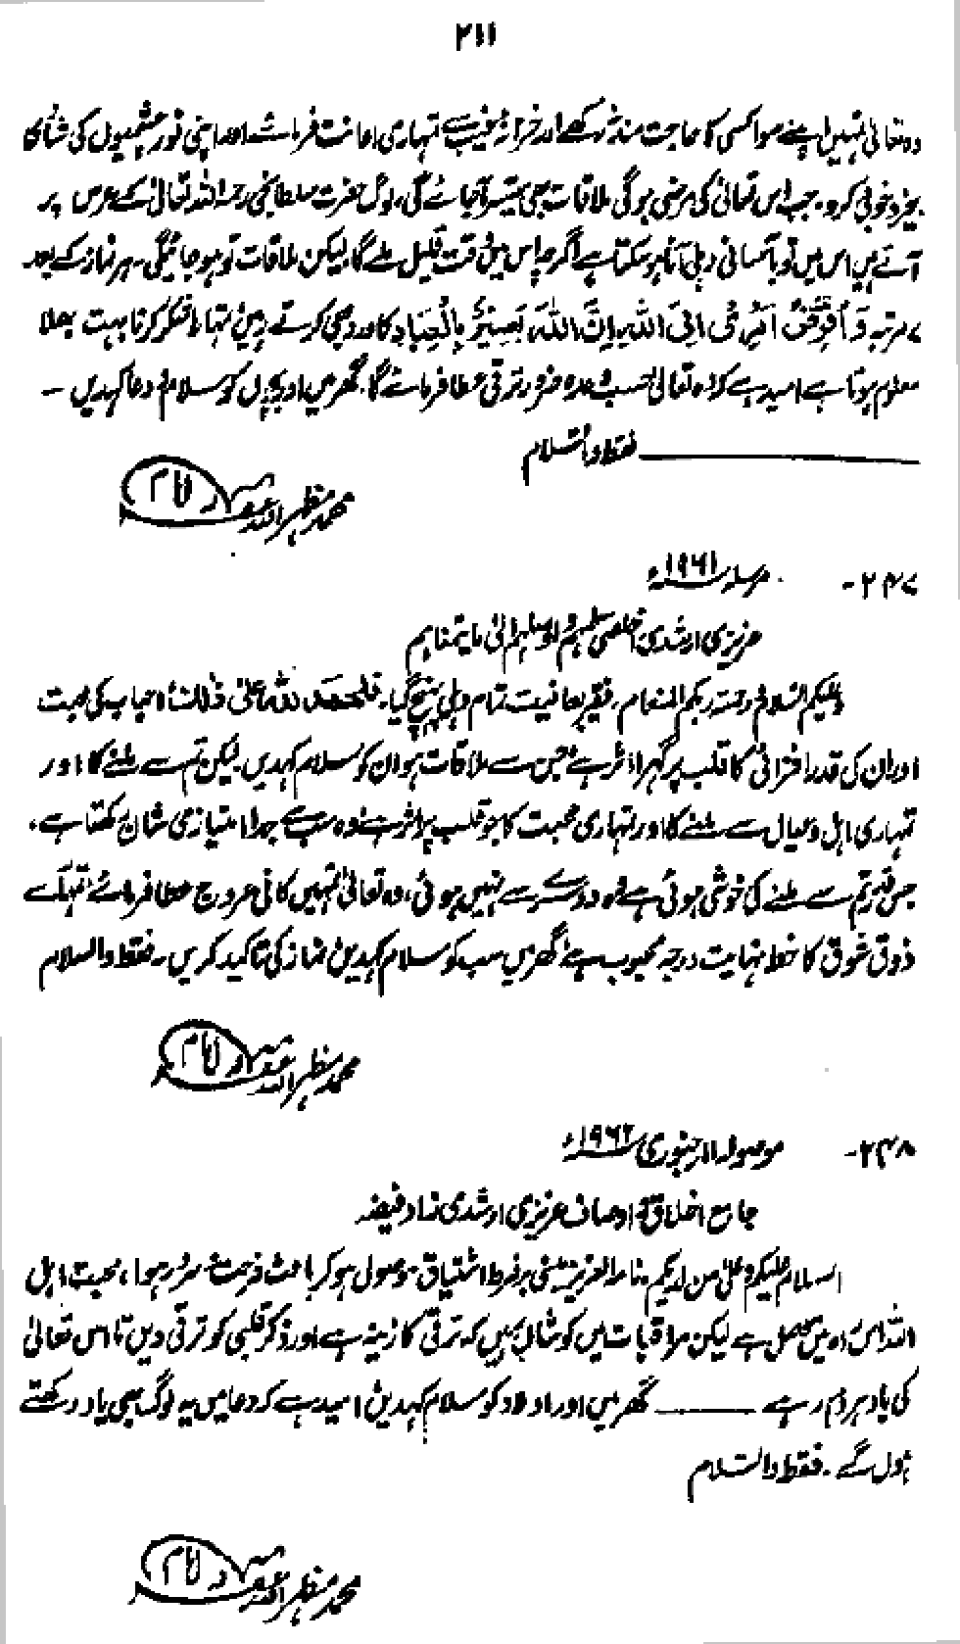 ۲۱۱
وہ تعالیٰ تمہیں اپنے سوا کسی کا حاجت مند نہ رکھے اور خزانۂ غیب سے تمہاری اعانت فرمائے اور اپنی نور چشمیوں کی شادی
بخیر و خوبی کرو۔ جب اس تعالیٰ کی مرضی ہوگی ملاقات بھی میسر آجائے گی، لوگ حضرت سلطانجی رحمۃ اللہ تعالیٰ کے عرس پر
آتے ہیں اس میں تو بآسانی دہلی آنا ہو سکتا ہے اگرچہ اس میں وقت قلیل ملے گا لیکن ملاقات تو ہو جائیگی۔ ہر نماز کے بعد
۷ مرتبہ وَ اُفَوِّضُ اَمْرِیْ اِلَی اللّٰہِ اِنَّ اللّٰہَ بَصِیْرٌ بِالْعِبَادِ کا ورد بھی کرتے رہیں تمہارا فکر کرنا بہت بھلا
معلوم ہوتا ہے امید ہے کہ وہ تعالیٰ حسب وعدہ ضرور ترقی عطا فرمائے گا۔ گھر میں اور بچوں کو سلام و دعا کہدیں ۔
فقط والسلام
محمد مظہر اللہ عفرلہ امام
۲۴۷۔ مرسلہ ۱۹۶۱ء
عزیزی ارشدی اخلصی سلمہم و اوصلہم الیٰ ما یتمناہم
وعلیکم السلام و رحمتہ ربکم المنعام۔ فقیر بعافیت تمام دہلی پہنچ گیا۔ فلحمد للہ علیٰ ذالک۔ احباب کی محبت
اور ان کی قدر افزائی کا قلب پر گہرا اثر ہے جن سے ملاقات ہو ان کو سلام کہدیں لیکن تم سے ملنے کا اور
تمہاری اہل و عیال سے ملنے کا اور تمہاری محبت کا جو قلب پر اثر ہے وہ سب سے جدا امتیازی شان رکھتا ہے۔
جس قدر تم سے ملنے کی خوشی ہوئی ہے وہ دوسرے سے نہیں ہوئی، وہ تعالیٰ تمہیں کافی عروج عطا فرمائے تمہارے
ذوق شوق کا خط نہایت درجہ محبوب ہے گھر میں سب کو سلام کہدیں نماز کی تاکید کریں۔ فقط والسلام
محمد مظہر اللہ عفرلہ امام
۲۴۸۔ موصولہ ۱۱ر جنوری ۱۹۶۲ء
جامع اخلاق و اوصاف عزیزی ارشدی زاد فیضہ
السلام علیکم وعلیٰ من لدیکم۔ نامۂ العزیز مبنی بر فرط اشتیاق موصول ہو کر باعث فرحت و سرور ہوا، محبت اہل
اللہ اس راہ میں اصل ہے لیکن مراقبات میں کوشاں رہیں کہ ترقی کا زینہ ہے اور ذکر قلبی کو ترقی دیں تا اس تعالیٰ
کی یاد ہر دم رہے ـــــــ گھر میں اور اولاد کو سلام کہدیں امید ہے کہ دعا میں یہ لوگ بھی یاد رکھتے
ہوں گے۔ فقط والسلام
محمد مظہر اللہ عفرلہ امام